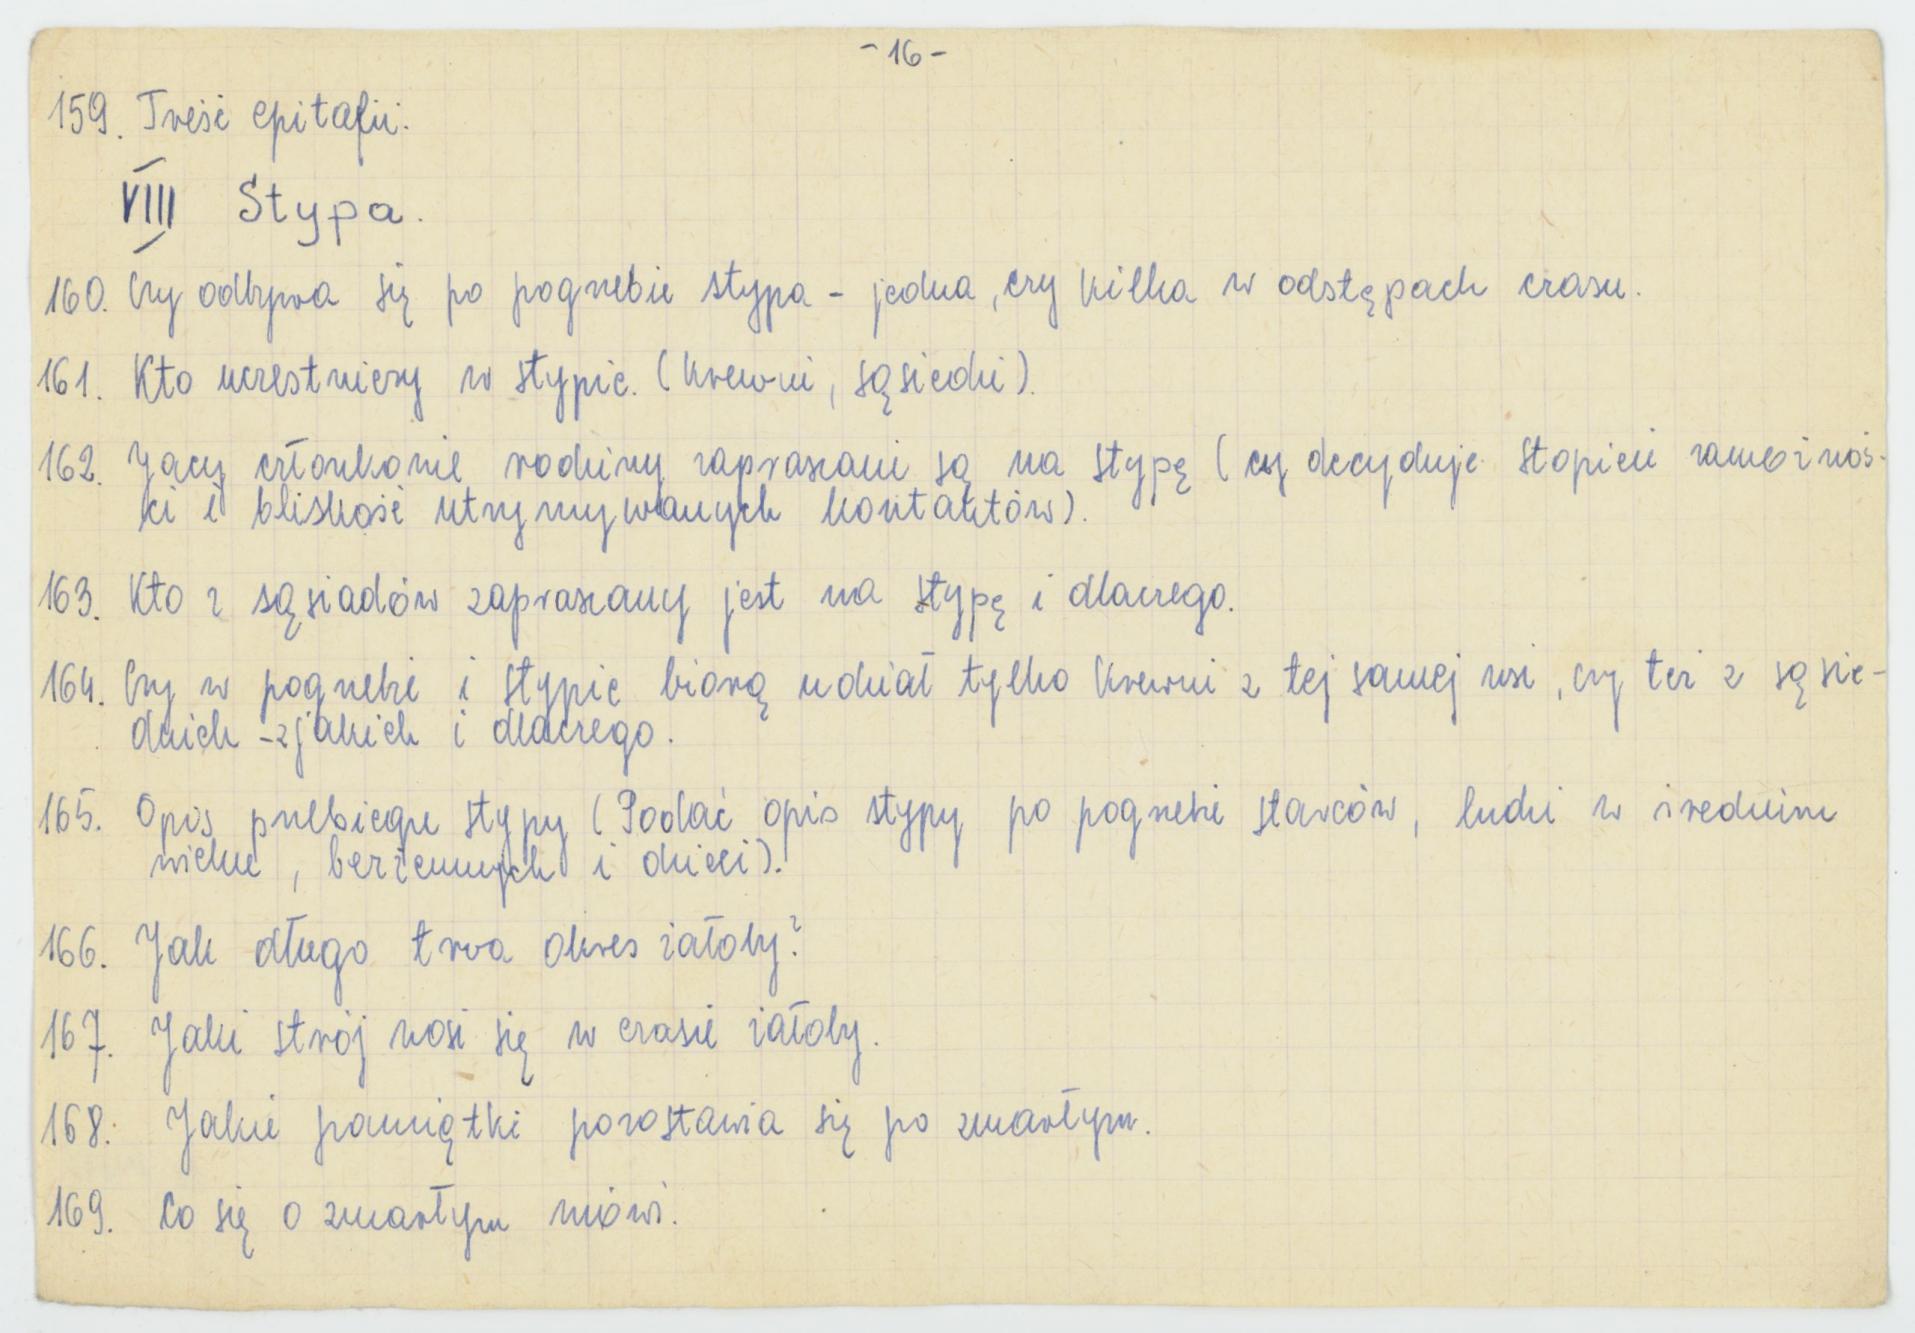 - 16 -
159. Treść epitafii.
VIII Stypa.
160. Czy odbywa się po pogrzebie stypa - jedna, czy kilka w odstępach czasu.
161. Kto uczestniczy w stypie. (krewni, sąsiedzi).
162. Jacy członkowie rodziny zapraszani są na stypę (czy decyduje stopień zamożnoś-
ci i bliskość utrzymywanych kontaktów).
163. Kto z sąsiadów zapraszany jest na stypę i dlaczego.
164. Czy w pogrzebie i stypie biorą udział tylko krewni z tej samej wsi, czy też z sąsie-
dnich - z jakich i dlaczego.
165. Opis przebiegu stypy (Podać opis stypy po pogrzebie starców, ludzi w średnim
wieku, bezżennych i dzieci).
166. Jak długo trwa okres żałoby?
167. Jaki strój nosi się w czasie żałoby.
168. Jakie pamiątki pozostawia się po zmarłym.
169. Co się o zmarłym mówi.